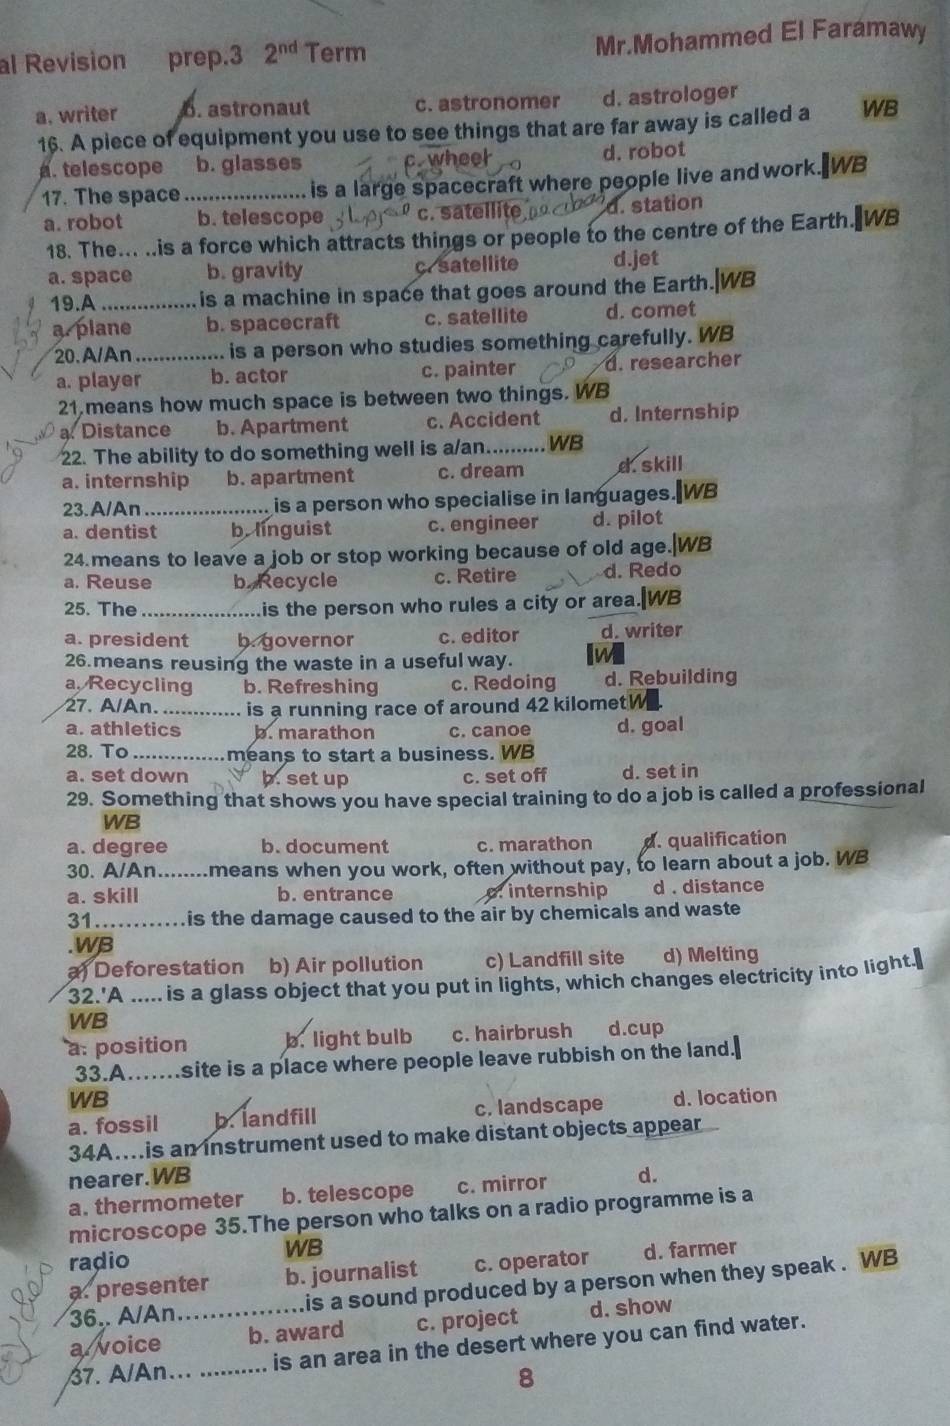 al Revision prep.3 2nd Term Mr.Mohammed El Faramawy
a. writer b. astronaut c. astronomer d. astrologer
16. A piece of equipment you use to see things that are far away is called a WB
a. telescope b. glasses c. wheel d. robot
17. The space .................... is a large spacecraft where people live and work. WB
a. robot b. telescope c. satellite d. station
18. The... ..is a force which attracts things or people to the centre of the Earth. WB
a. space b. gravity c. satellite d.jet
19.A ................ is a machine in space that goes around the Earth. WB
a. plane b. spacecraft c. satellite d. comet
20.A/An ............... is a person who studies something carefully. WB
a. player b. actor c. painter d. researcher
21.means how much space is between two things. WB
a. Distance b. Apartment c. Accident d. Internship
22. The ability to do something well is a/an.......... WB
a. internship b. apartment c. dream d. skill
23.A/An ..................... is a person who specialise in languages. WB
a. dentist b. linguist c. engineer d. pilot
24.means to leave a job or stop working because of old age. WB
a. Reuse b. Recycle c. Retire d. Redo
25. The ....................is the person who rules a city or area. WB
a. president b. governor c. editor d. writer
26.means reusing the waste in a useful way. W
a. Recycling b. Refreshing c. Redoing d. Rebuilding
27. A/An. ............. is a running race of around 42 kilometW .
a. athletics b. marathon c. canoe d. goal
28. To ...............means to start a business. WB
a. set down b. set up c. set off d. set in
29. Something that shows you have special training to do a job is called a professional
WB
a. degree b. document c. marathon d. qualification
30. A/An........means when you work, often without pay, to learn about a job. WB
a. skill b. entrance c. internship d . distance
31.............is the damage caused to the air by chemicals and waste
.WB
a) Deforestation b) Air pollution c) Landfill site d) Melting
32.'A ..... is a glass object that you put in lights, which changes electricity into light.
WB
a. position b. light bulb c. hairbrush d.cup
33.A.......site is a place where people leave rubbish on the land.
WB
a. fossil b. landfill c. landscape d. location
34A....is an instrument used to make distant objects appear
nearer. WB
a. thermometer b. telescope c. mirror d.
microscope 35.The person who talks on a radio programme is a
radio WB
a. presenter b. journalist c. operator d. farmer
36.. A/An.................is a sound produced by a person when they speak . WB
a. voice b. award c. project d. show
37. A/An... ........... is an area in the desert where you can find water.
8